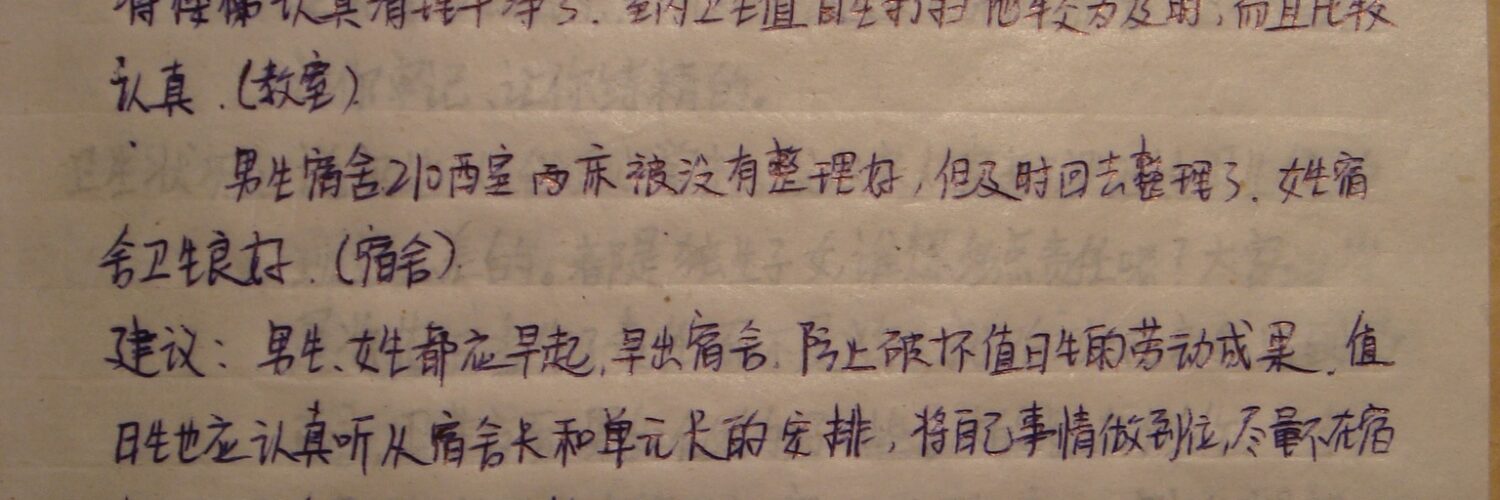 将楼梯认真清理干净了.室内卫生值日生打扫也较为及时,而且比较
认真.(教室)
男生宿舍210西室两床被没有整理好,但及时回去整理了.女生宿
舍卫生良好.(宿舍)
建议:男生、女生都应早起,早出宿舍.防止破坏值日生的劳动成果.值
日生也应认真听从宿舍长和单元长的安排,将自己事情做到位,尽量不在宿